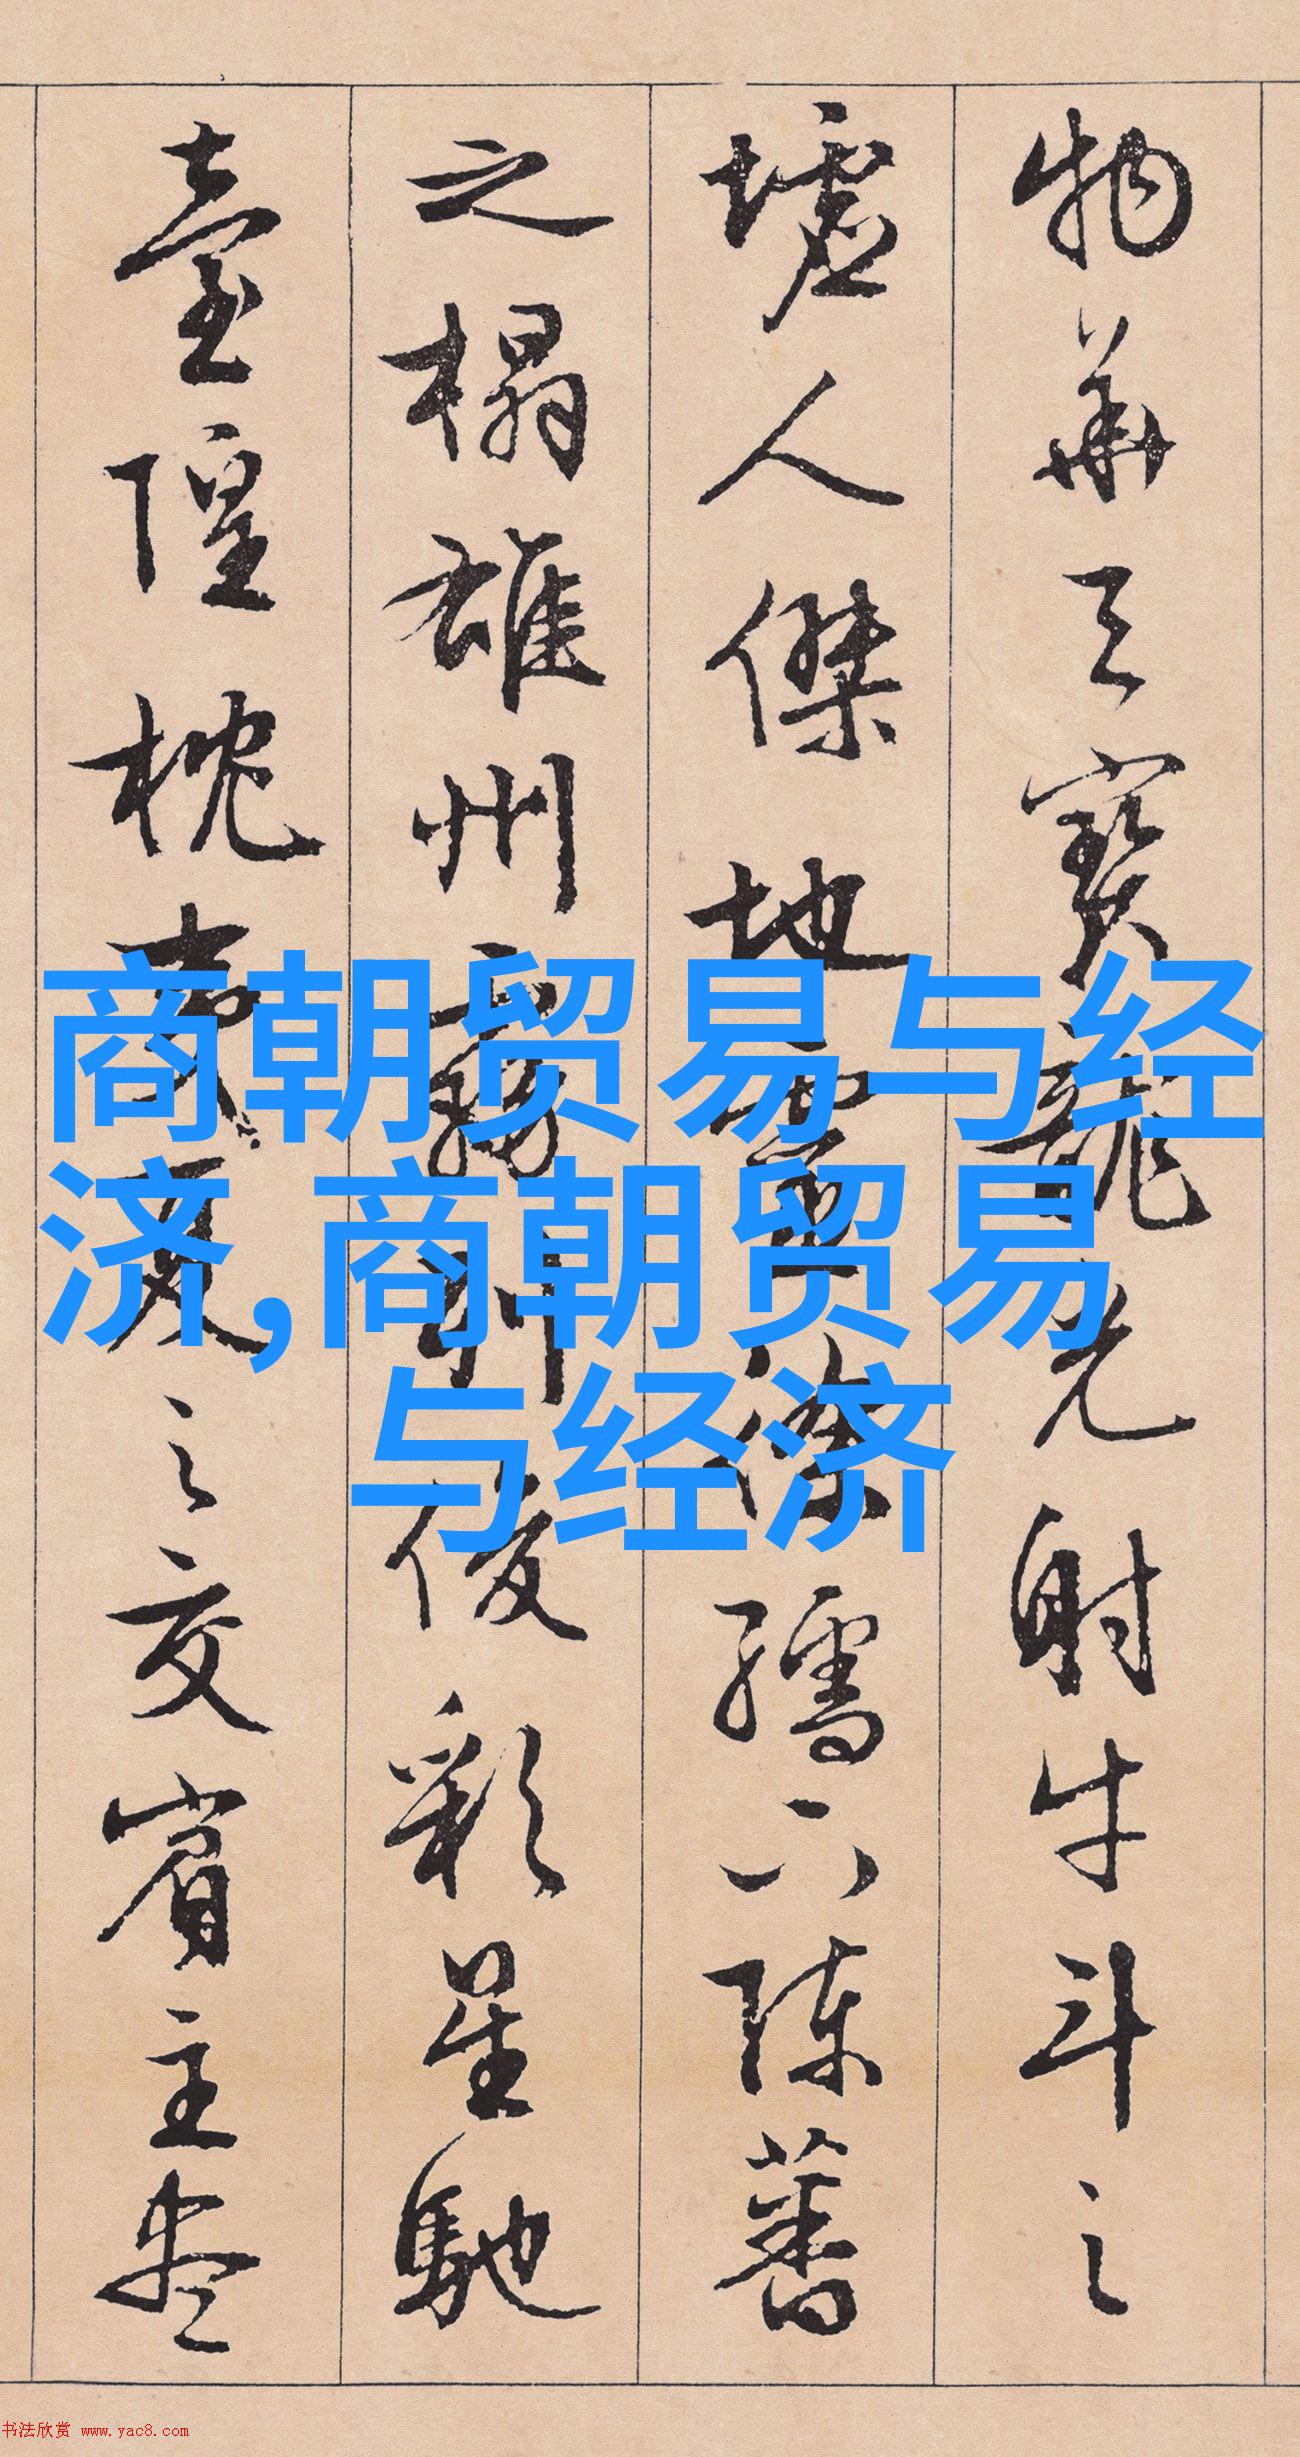 物華天寶龍光射牛斗之
墟人傑地靈徐孺下陳蕃
之榻雄州霧列俊彩星馳
臺隍枕夷夏之交賓主盡
商朝贸易与经
济,商朝贸易
与经济
书法欣赏 www.yac8.com